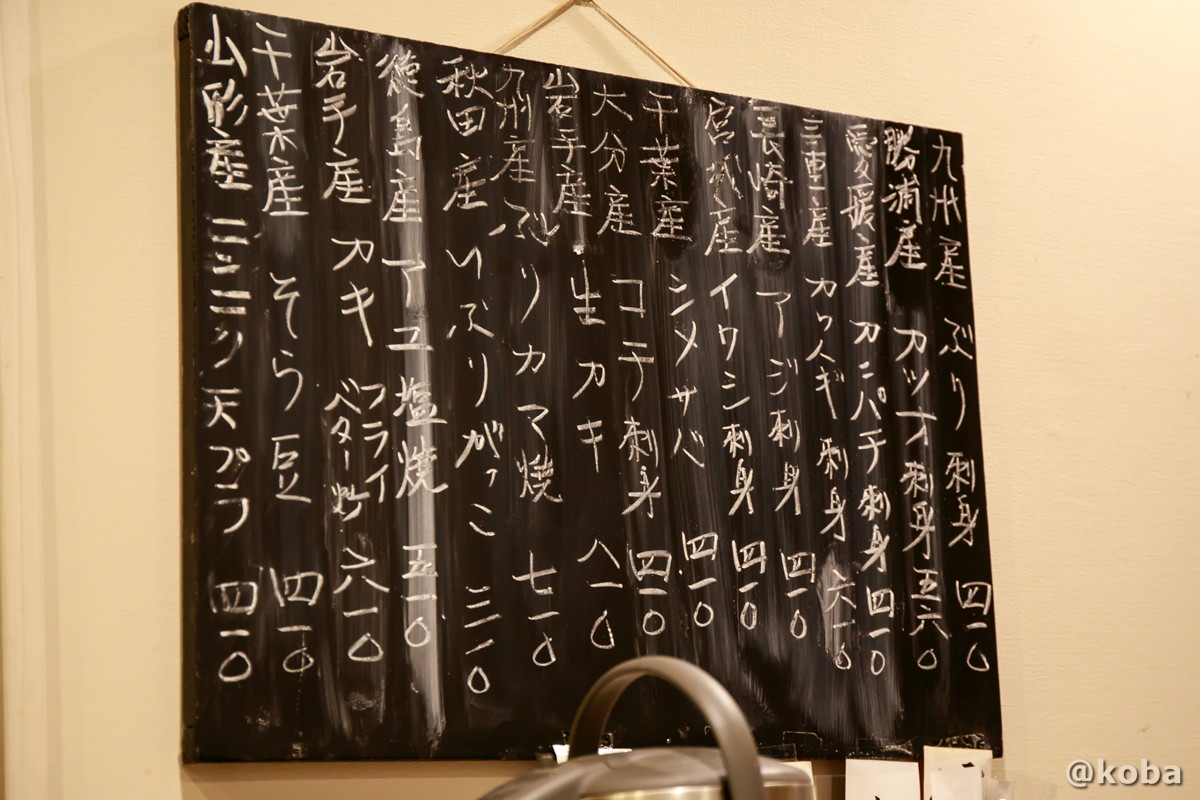 九州産 ぶり 刺身 四一〇
勝浦産 カツオ 刺身 五六〇
愛媛産 カンパチ 刺身 四一〇
三重産 カワハギ 刺身 六一〇
長崎産 アジ 刺身 四一〇
宮城産 イワシ 刺身 四一〇
千葉産 シメサバ 四一〇
大分産 コチ 刺身 四一〇
岩手産 生カキ 八一〇
九州産 ぶりカマ焼 七一〇
秋田産 いぶりがっこ 三一〇
徳島産 アユ塩焼 五一〇
岩手産 カキ フライ バター炒 六一〇
千葉産 そら豆 四一〇
山形産 ニンニク天プラ 四一〇
@koba